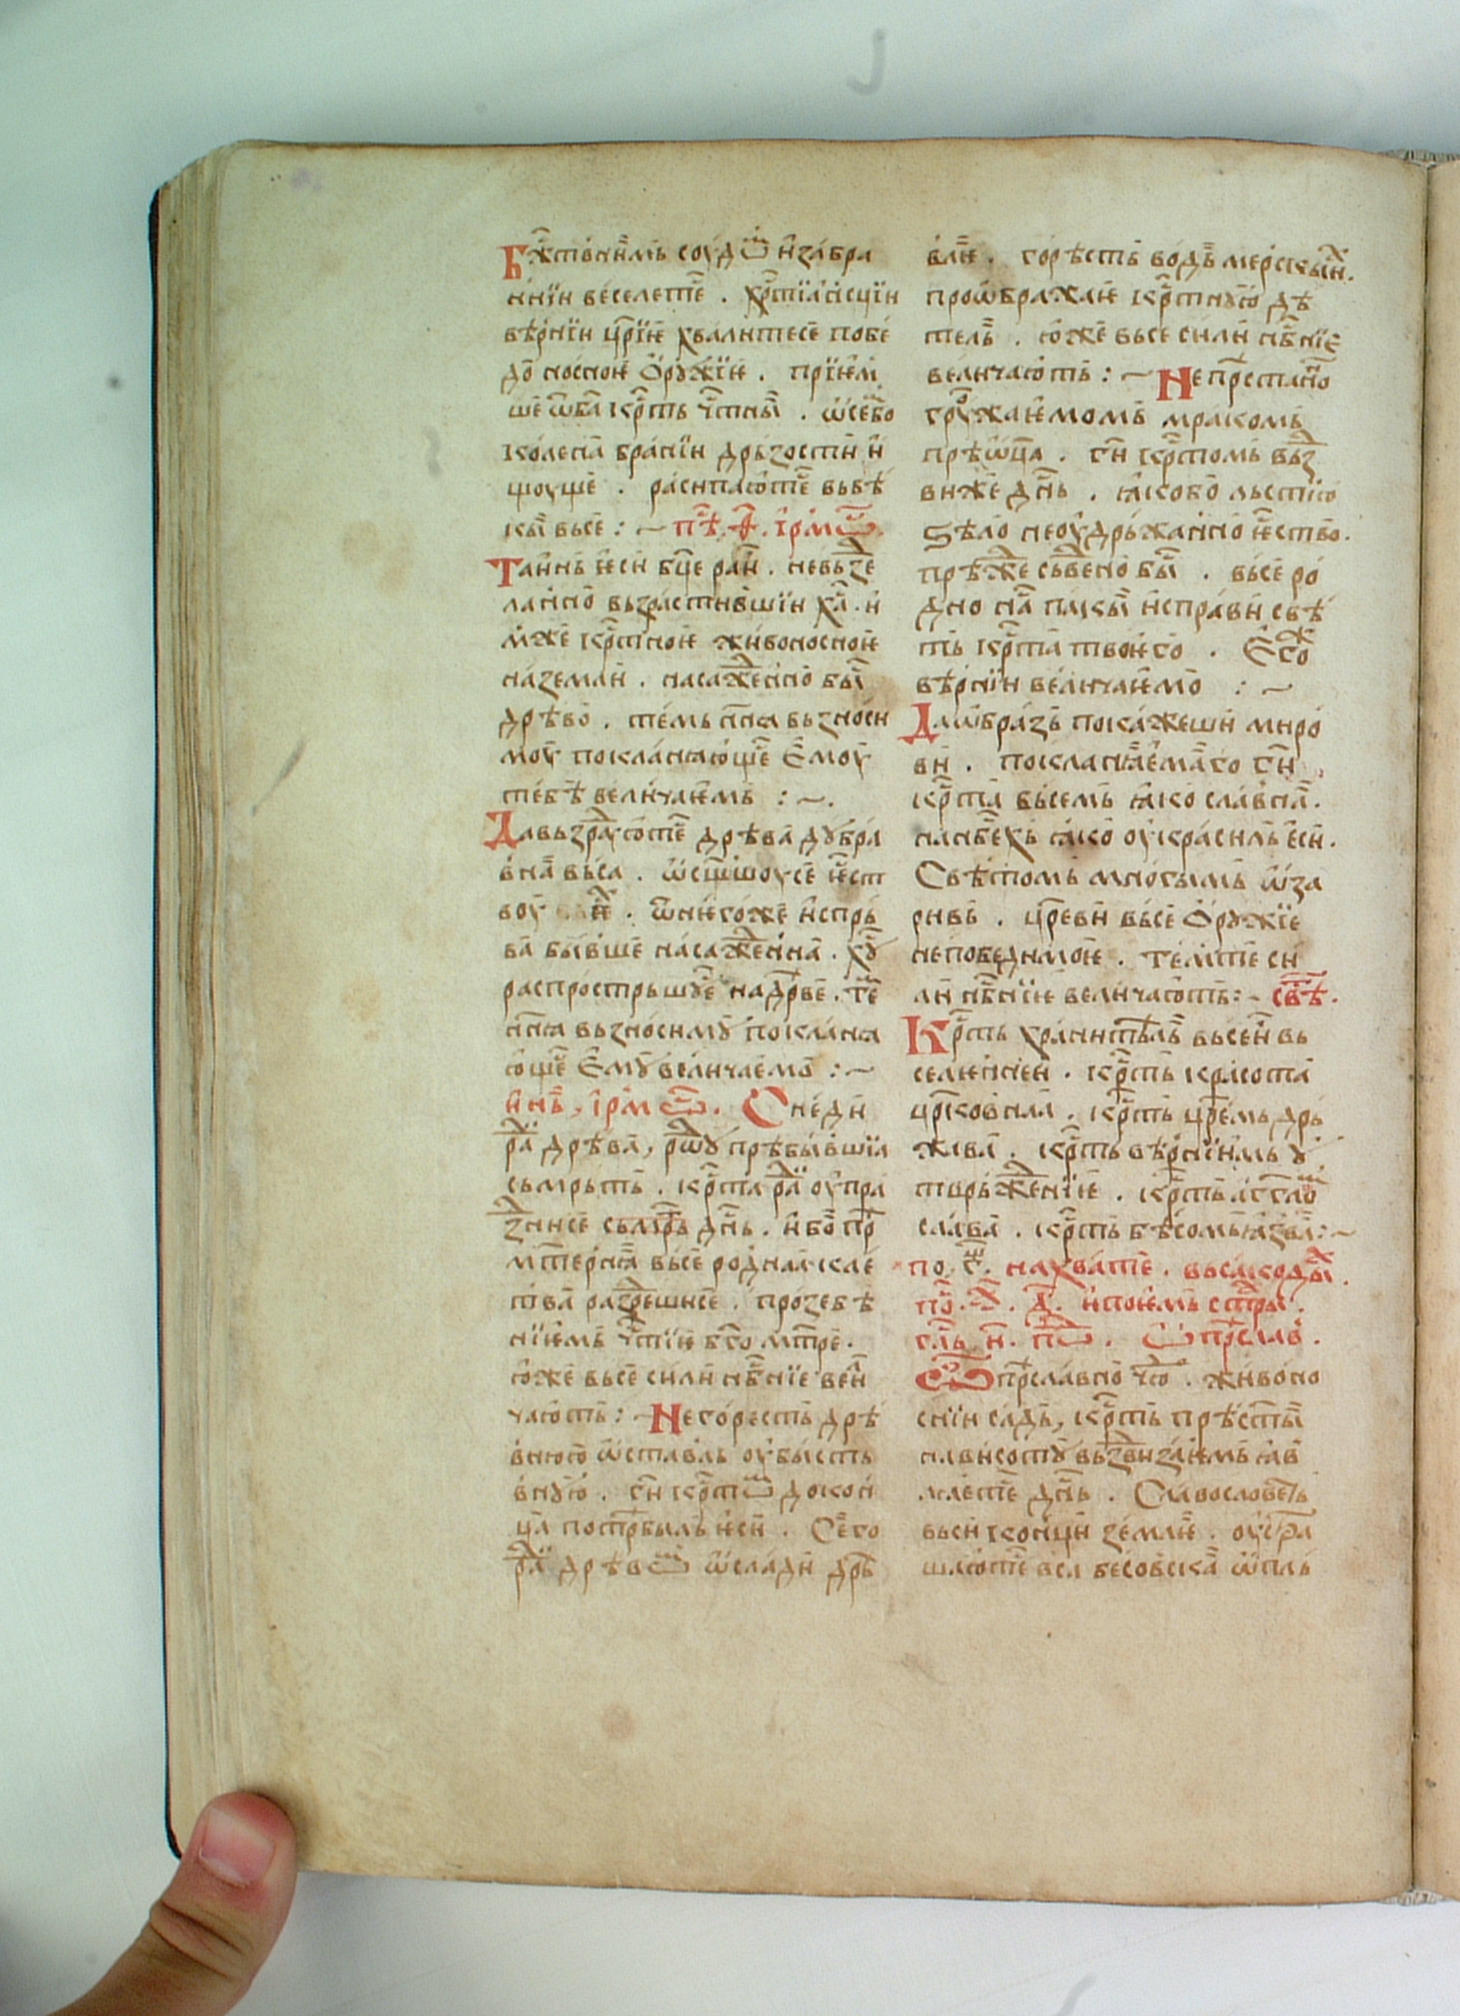 Бж҃тв҆нⷩимь соудѡⷨ и҆забра
нїи веселетеⷭ . хрⷭтїꙗнсцїи
вѣрнїи црⷭїи хвалитесе побе
доносноѥ ѻ҆рꙋжїе . прїим
ше ѿ ба҃ крⷭть чⷭтнаⷢ . ѡ҆ семь бо
колена бранїи дрьзости и
щоуще . расипаютⷭе вьвѣ
кы вьсе : ~ пѣⷭ . ѳ҃ . і҆рмѡⷭ .
Таинь ѥ҆си бц҃е раи . невьзде
ланно вьзрастившїи ха҃ . и
мже крⷭтноѥ живоносноѥ
на земли . насажденно быⷭ
дрѣво . темь нн҃ꙗ вьзноси
моу покланꙗюще ѥ҆моу
тебѣ величаѥмь : ~ .
Да вьзрⷣаꙋютⷭе дрѣва дꙋбра
внаꙗ вьса . ѡ҆сщ҃шоусе ѥⷭст
воу ихь . ѿ нѥгоже испрь
ва бывше насажденна . хꙋ҃
распростршꙋсе на дрⷣеве . теⷨ
нн҃ꙗ вьзносимꙋ покланꙗ
юще ѥ҆мꙋ величаемь : ~
инь , і҆рмѡⷭ . Снеди
раⷣи дрѣва , родꙋ прѣбывшїа
сьмрьть . крⷭта раⷣи оупра
зднисе сьмрть дн҃ь . ибо прⷪ
мт҃ернꙗꙗ вьсеродна кле
тва раздрешисе . прозебѣ
нїимь чⷭтїѥ бг҃о мт҃ре .
юже вьсе сили нбⷭнїе вели
чають : ~ Не горесть дрѣ
вною ѡ҆ставль оубысть
внꙋю . гⷭи крⷭтѡⷨ до кон
ца потрѣбиль ѥ҆си . Сего
раⷣи дрѣвѡⷨ ѡ҆слади дрѣ
влѥ . горѣсть водь мерскыихь .
проѡ҆бражаѥ крⷭтнꙋю дѣ
тель . юже вьсе сили нбⷭнїе
величають : ~ Непрⷭѣстанно
грꙋжаѥмомь мракомь
прѣѡ҆ца . гⷭи крⷭтомь вьз
виже дн҃ь . ꙗко бо льстїю
ѕѣло неоудрьжанно ѥⷭство .
прѣжде сьведено быⷭ . вьсеро
дно на пакы исправи свѣ
ть крⷭта твоѥго . Ѥгоⷤ
вѣрнїи величаѥмо : ~
Да ѡ҆бразь покажеши миро
ви . покланꙗемаго гⷭи
крⷭта вьсемь ꙗко славна .
на нбⷭехь ꙗко оукрасиль ѥси .
Свѣтомь многымь ѡ҆за
ривь . црⷭеви вьсе ѻ҆рꙋжїе
непобедимоѥ . темь те си
ли нбⷭнїѥ величають : ~ свⷮѣ .
Крⷭть хранитель вьсеи вь
селѥннеи . крⷭть красота
црⷭковнаа . крⷭть црⷭемь дрь
жава . крⷭть вѣрнїимь ꙋ
тврьжденїе . крⷭть агг҃лѡⷨ
слава . крⷭть бѣсомь ꙗзва : ~
по с҃ . на хвалите . вьсакодых .
поⷭ . х . д҃ . и поѥмь стⷯри .
глⷭь и҃ . поⷣ . Ѡ прⷭеслав .
Ѽ прⷭѣславно чюⷣ . живоно
снїи садь , крⷭть прѣстыи
на висотꙋ вьздвизаѥмь ꙗв
лꙗетсе дн҃ь . Славословеть
вьси конци землѥ . оустра
шаютсе вси бесовска ѡ҆пль